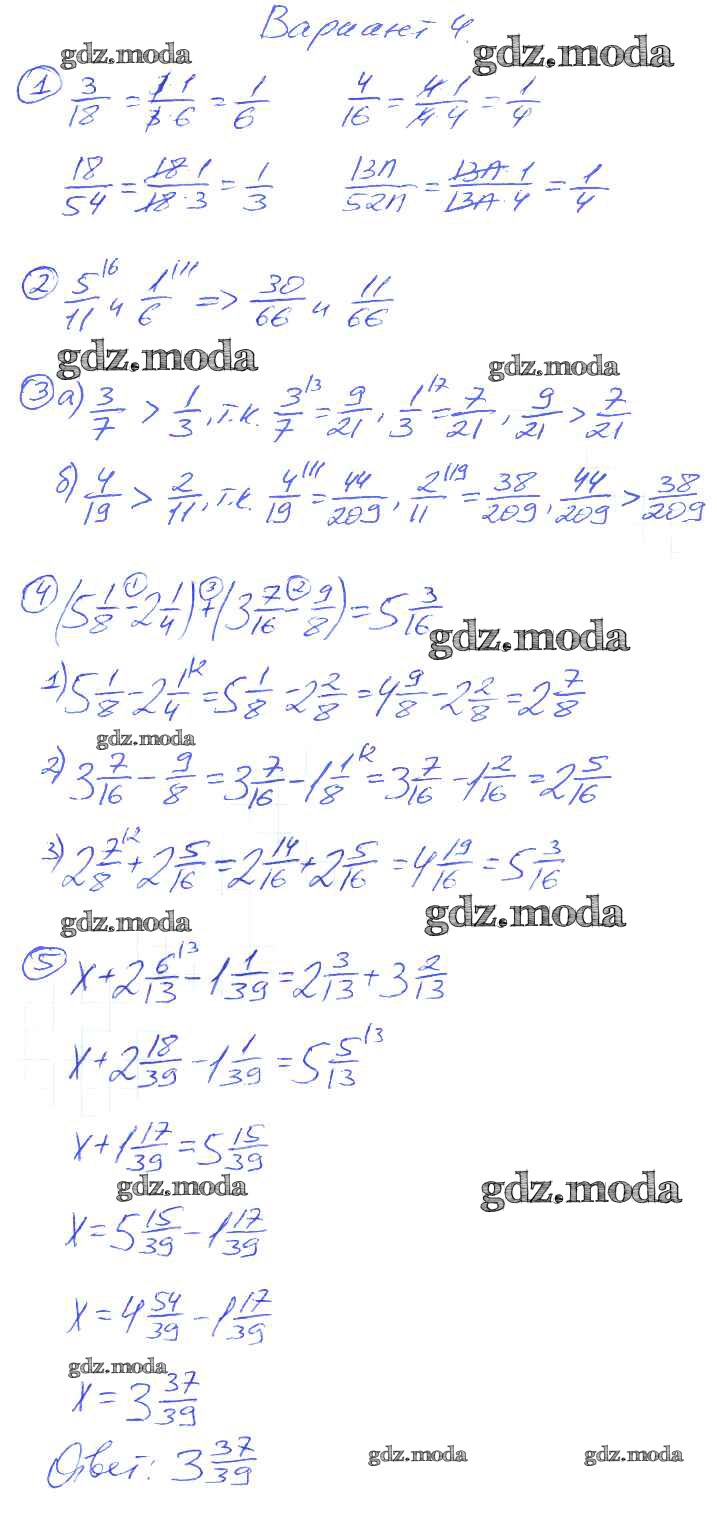 Вариант 4.
gdz.moda gdz.moda
① 3/18 = 1·1/3·6 = 1/6 4/16 = 4·1/4·4 = 1/4
18/54 = 18·1/18·3 = 1/3 13п/52п = 13п·1/13п·4 = 1/4
② 5/11 |6 и 1/6 |11 => 30/66 и 11/66
gdz.moda gdz.moda
③ а) 3/7 > 1/3, т.к. 3/7 |3 = 9/21, 1/3 |7 = 7/21, 9/21 > 7/21
б) 4/19 > 2/11, т.к. 4/19 |11 = 44/209, 2/11 |19 = 38/209, 44/209 > 38/209
④ (5 1/8 -① 2 1/4) +③ (3 7/16 -② 9/8) = 5 3/16
gdz.moda
1) 5 1/8 - 2 1/4 |2 = 5 1/8 - 2 2/8 = 4 9/8 - 2 2/8 = 2 7/8
gdz.moda
2) 3 7/16 - 9/8 = 3 7/16 - 1 1/8 |2 = 3 7/16 - 1 2/16 = 2 5/16
3) 2 7/8 |2 + 2 5/16 = 2 14/16 + 2 5/16 = 4 19/16 = 5 3/16
gdz.moda gdz.moda
⑤ x + 2 6/13 |3 - 1 1/39 = 2 3/13 + 3 2/13
x + 2 18/39 - 1 1/39 = 5 5/13 |3
x + 1 17/39 = 5 15/39
gdz.moda gdz.moda
x = 5 15/39 - 1 17/39
x = 4 54/39 - 1 17/39
gdz.moda
x = 3 37/39
Ответ: 3 37/39
gdz.moda gdz.moda